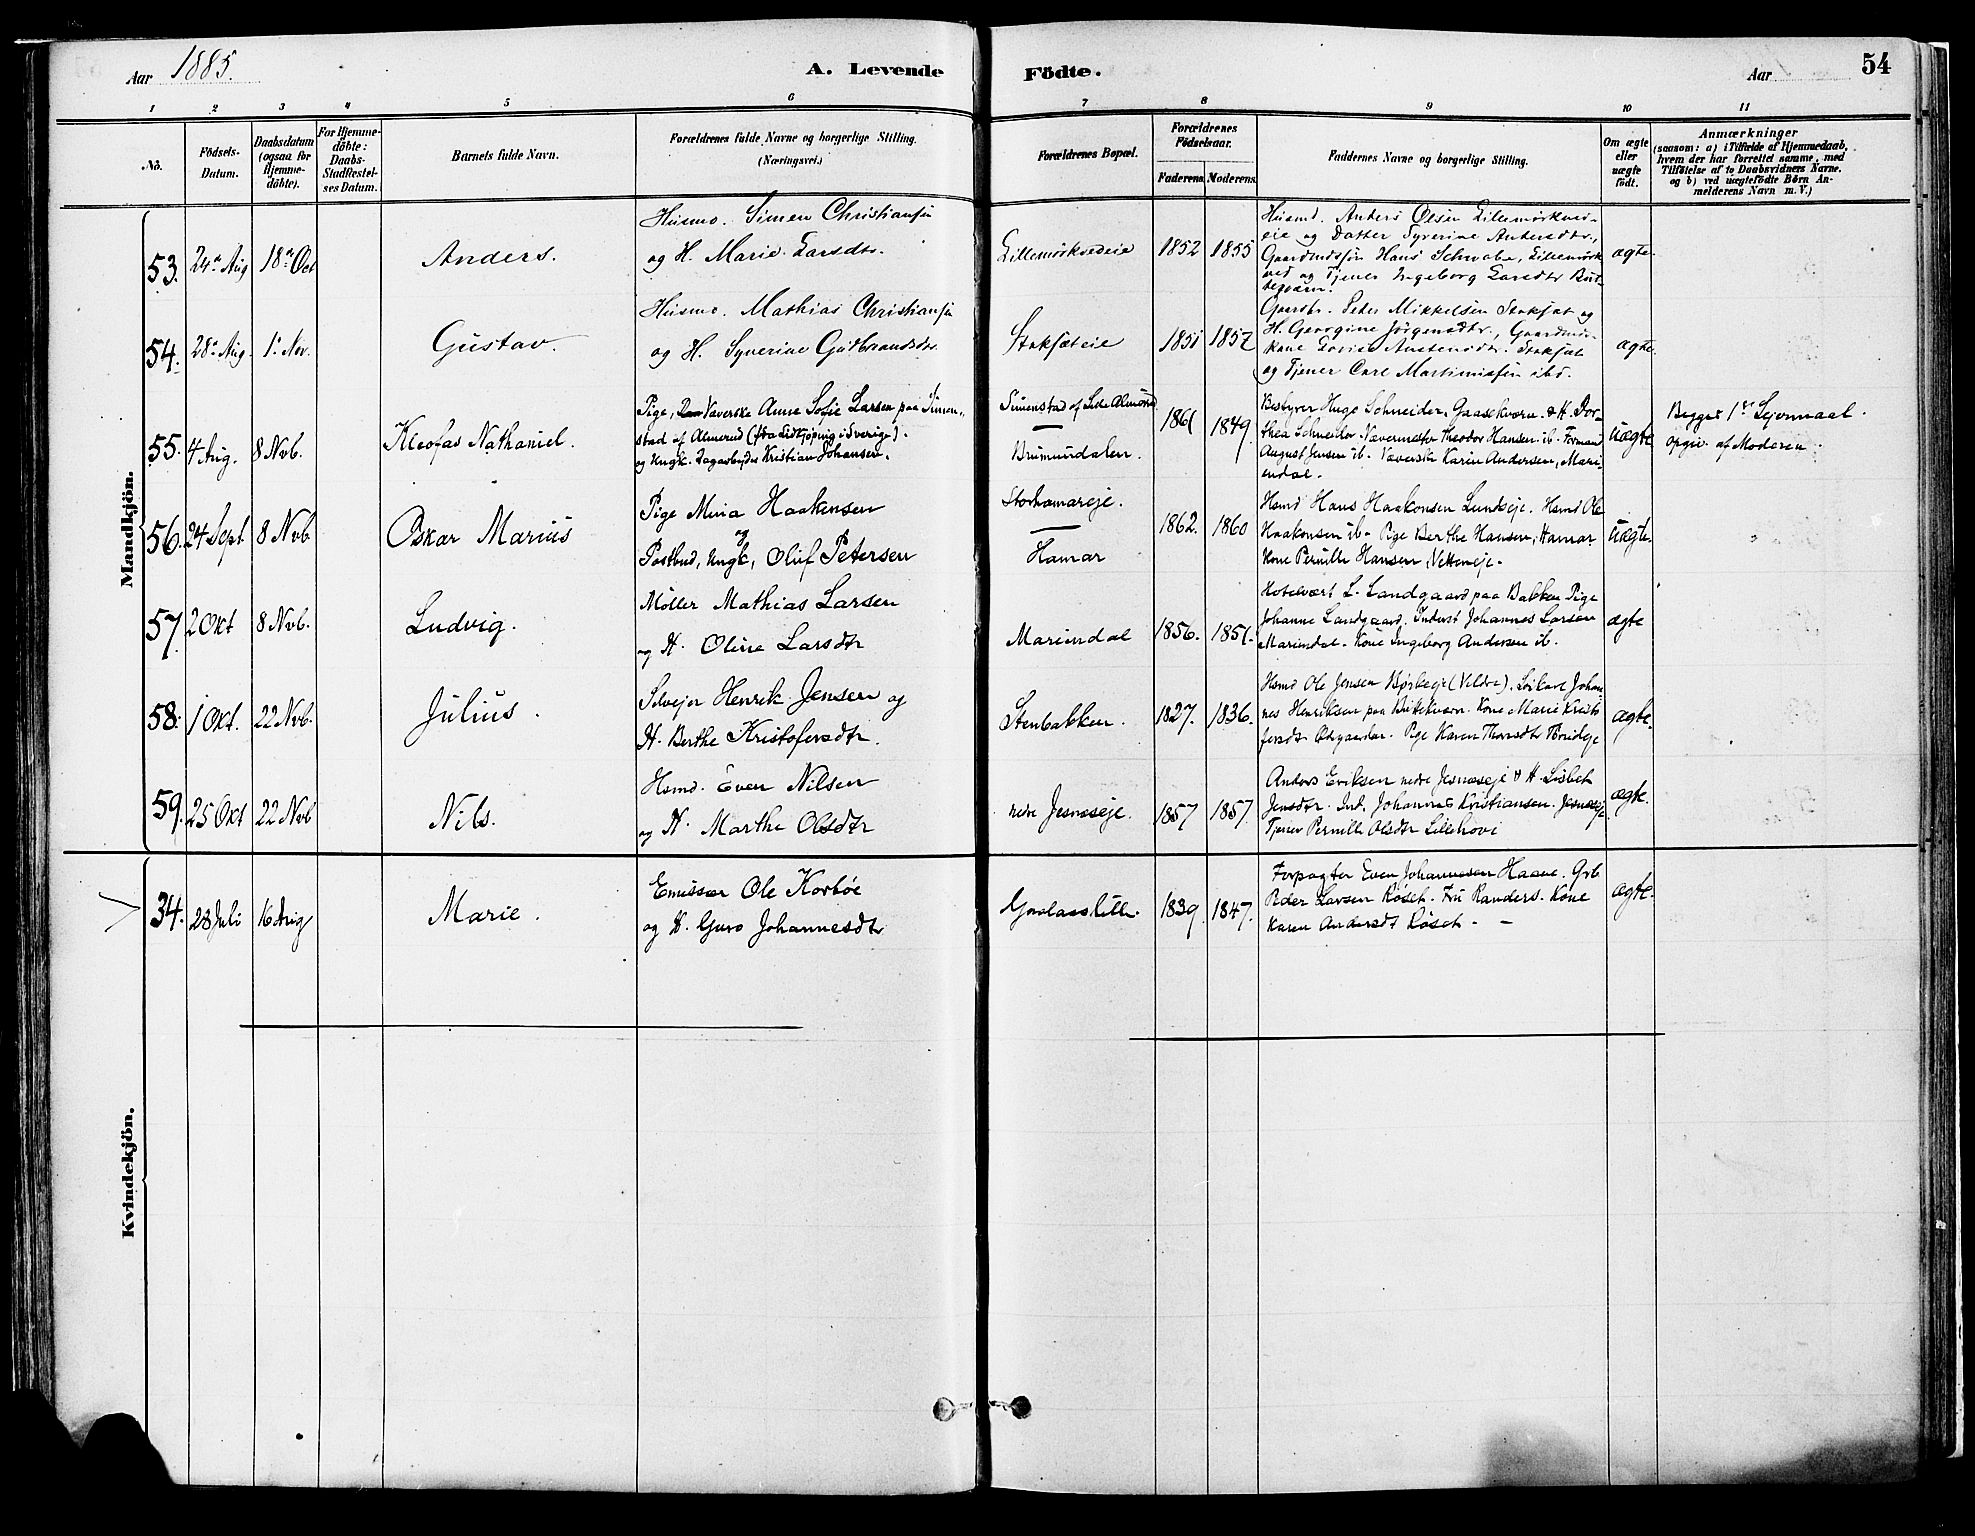 Aar 1885.
A. Levende Födte.
Aar
54
1 2 3 4 5 6 7 8 9 10 11
No.
Födsels-Datum.
Daabsdatum (ogsaa for Hjemme-döbte).
For Hjemme-döbte: Daabs-Stadfæstel-ses Datum.
Barnets fulde Navn.
Forældrenes fulde Navne og borgerlige Stilling. (Næringsvei.)
Forældrenes Bopæl.
Forældrenes Födselsaar.
Faderens. Moderens.
Faddernes Navne og borgerlige Stilling.
Om ægte eller uægte födt.
Anmærkninger
(saasom: a) i Tilfælde af Hjemmedaab,
hvem der har forrettet samme, med
Tilföielse af to Daabsvidners Navne.
og b) ved uægtefödte Börn An-
melderens Navn m. V.)
Mandkjön.
53. 24de Aug 18de Oct
Anders.
Husmd. Simen Christiansen
og H. Marie Larsdtr.
Lillemörkvedeie
1852 1855
Husmd. Anders Olsen Lillemörkved-
eie og Datter Syverine Andersdtr.,
Gaardmdssön Hans Schwabe, Lillemörk
ved og Tjener Ingeborg Larsdtr
ægte.
54. 28de Aug. 1ste Nov.
Gustav.
Husmd. Mathias Christiansen
og H. Syverine Gulbrandsdtr.
Stokfæteie
1851 1857
Gaardbr. Peder Mikkelsen Stokfæt og
H. Georgine Jörgensdtr., Gaardmds-
kone Lovise Austensdtr. Stokfæt
og Tjener Carl Martiniussen ibd.
ægte.
55. 4 Aug. 8 Nvb.
Kleofas Nathaniel.
Pige, Væverske Anne Sofie Larsen paa Simen-
stad af Almerud (fra Lidkjøping i Sverige).
og Ungk. Dagarbeyder Kristian Johansen.
Simenstad af Lille Almerud
Brumunddalen.
1861 1849.
Bestyrer Hugo Schneider, Gaasekværn. & H. Dor-
thea Schneider. Vævermester Theodor Hansen ib. Formand
August Jensen ib. Væverske Karin Andersen, Mari-
endal.
Uægte
Begges 1ste Lejermaal.
opgiv. af Moderen.
56. 24 Sept 8 Nvb.
Oskar Marius
Pige Mina Haakensen
og
Postbud, Ungk, Oluf Petersen
Storhamareje.
Hamar
1862. 1860
Hsmd Hans Haakonsen Lundseje. Hsmd Ole
Haakonsen ib. Pige Berthe Hansen, Hamar
Kone Pernille Hansen, Vetteneje.
Uægte.
"
57. 2 Okt 8 Nvb.
Ludvig.
Møller Mathias Larsen
og H. Oline Larsdtr
Mariendal
1856. 1851.
Hotelvært L. Landgaard paa Bakken Pige
Johanne Landgaard. Inderst Johannes Larsen
Mariendal. Kone Ingeborg Andersen ib.
ægte
58. 1 Okt. 22 Nvb.
Julius.
Selvejer Henrik Jensen og
H. Berthe Kristofersdtr.
Stenbakken.
1827. 1836.
Hsmd Ole Jensen Børkeeje (Veldre). Løskarl Johan-
nes Henriksen paa Bittekværn. Kone Marie Kristo
fersdtr Ødegaarden. Pige Karen Thorsdtr
ægte.
59. 25 Okt 22 Nvb
Nils.
Hsmd. Even Nilsen
og H. Marthe Olsdtr
nedre Jesnæseje.
1857 1857.
Anders Eriksen nedre Jesnæseje & H. Lisbet
Jensdtr. Ind. Johannes Kristiansen. Jesnæseje.
Tjener Pernille Olsdtr Lillehove
ægte.
Kvindekjön.
34. 28 Juli 16 Aug
Marie.
Emissær Ole Korbøe
og H. Guro Johannesdtr
1839 1847.
Forpagter Even Johannesen Haave. Grb
Peder Larsen Røset. Fru Randers. Kone
Karen Andersdt Røset. –
ægte.